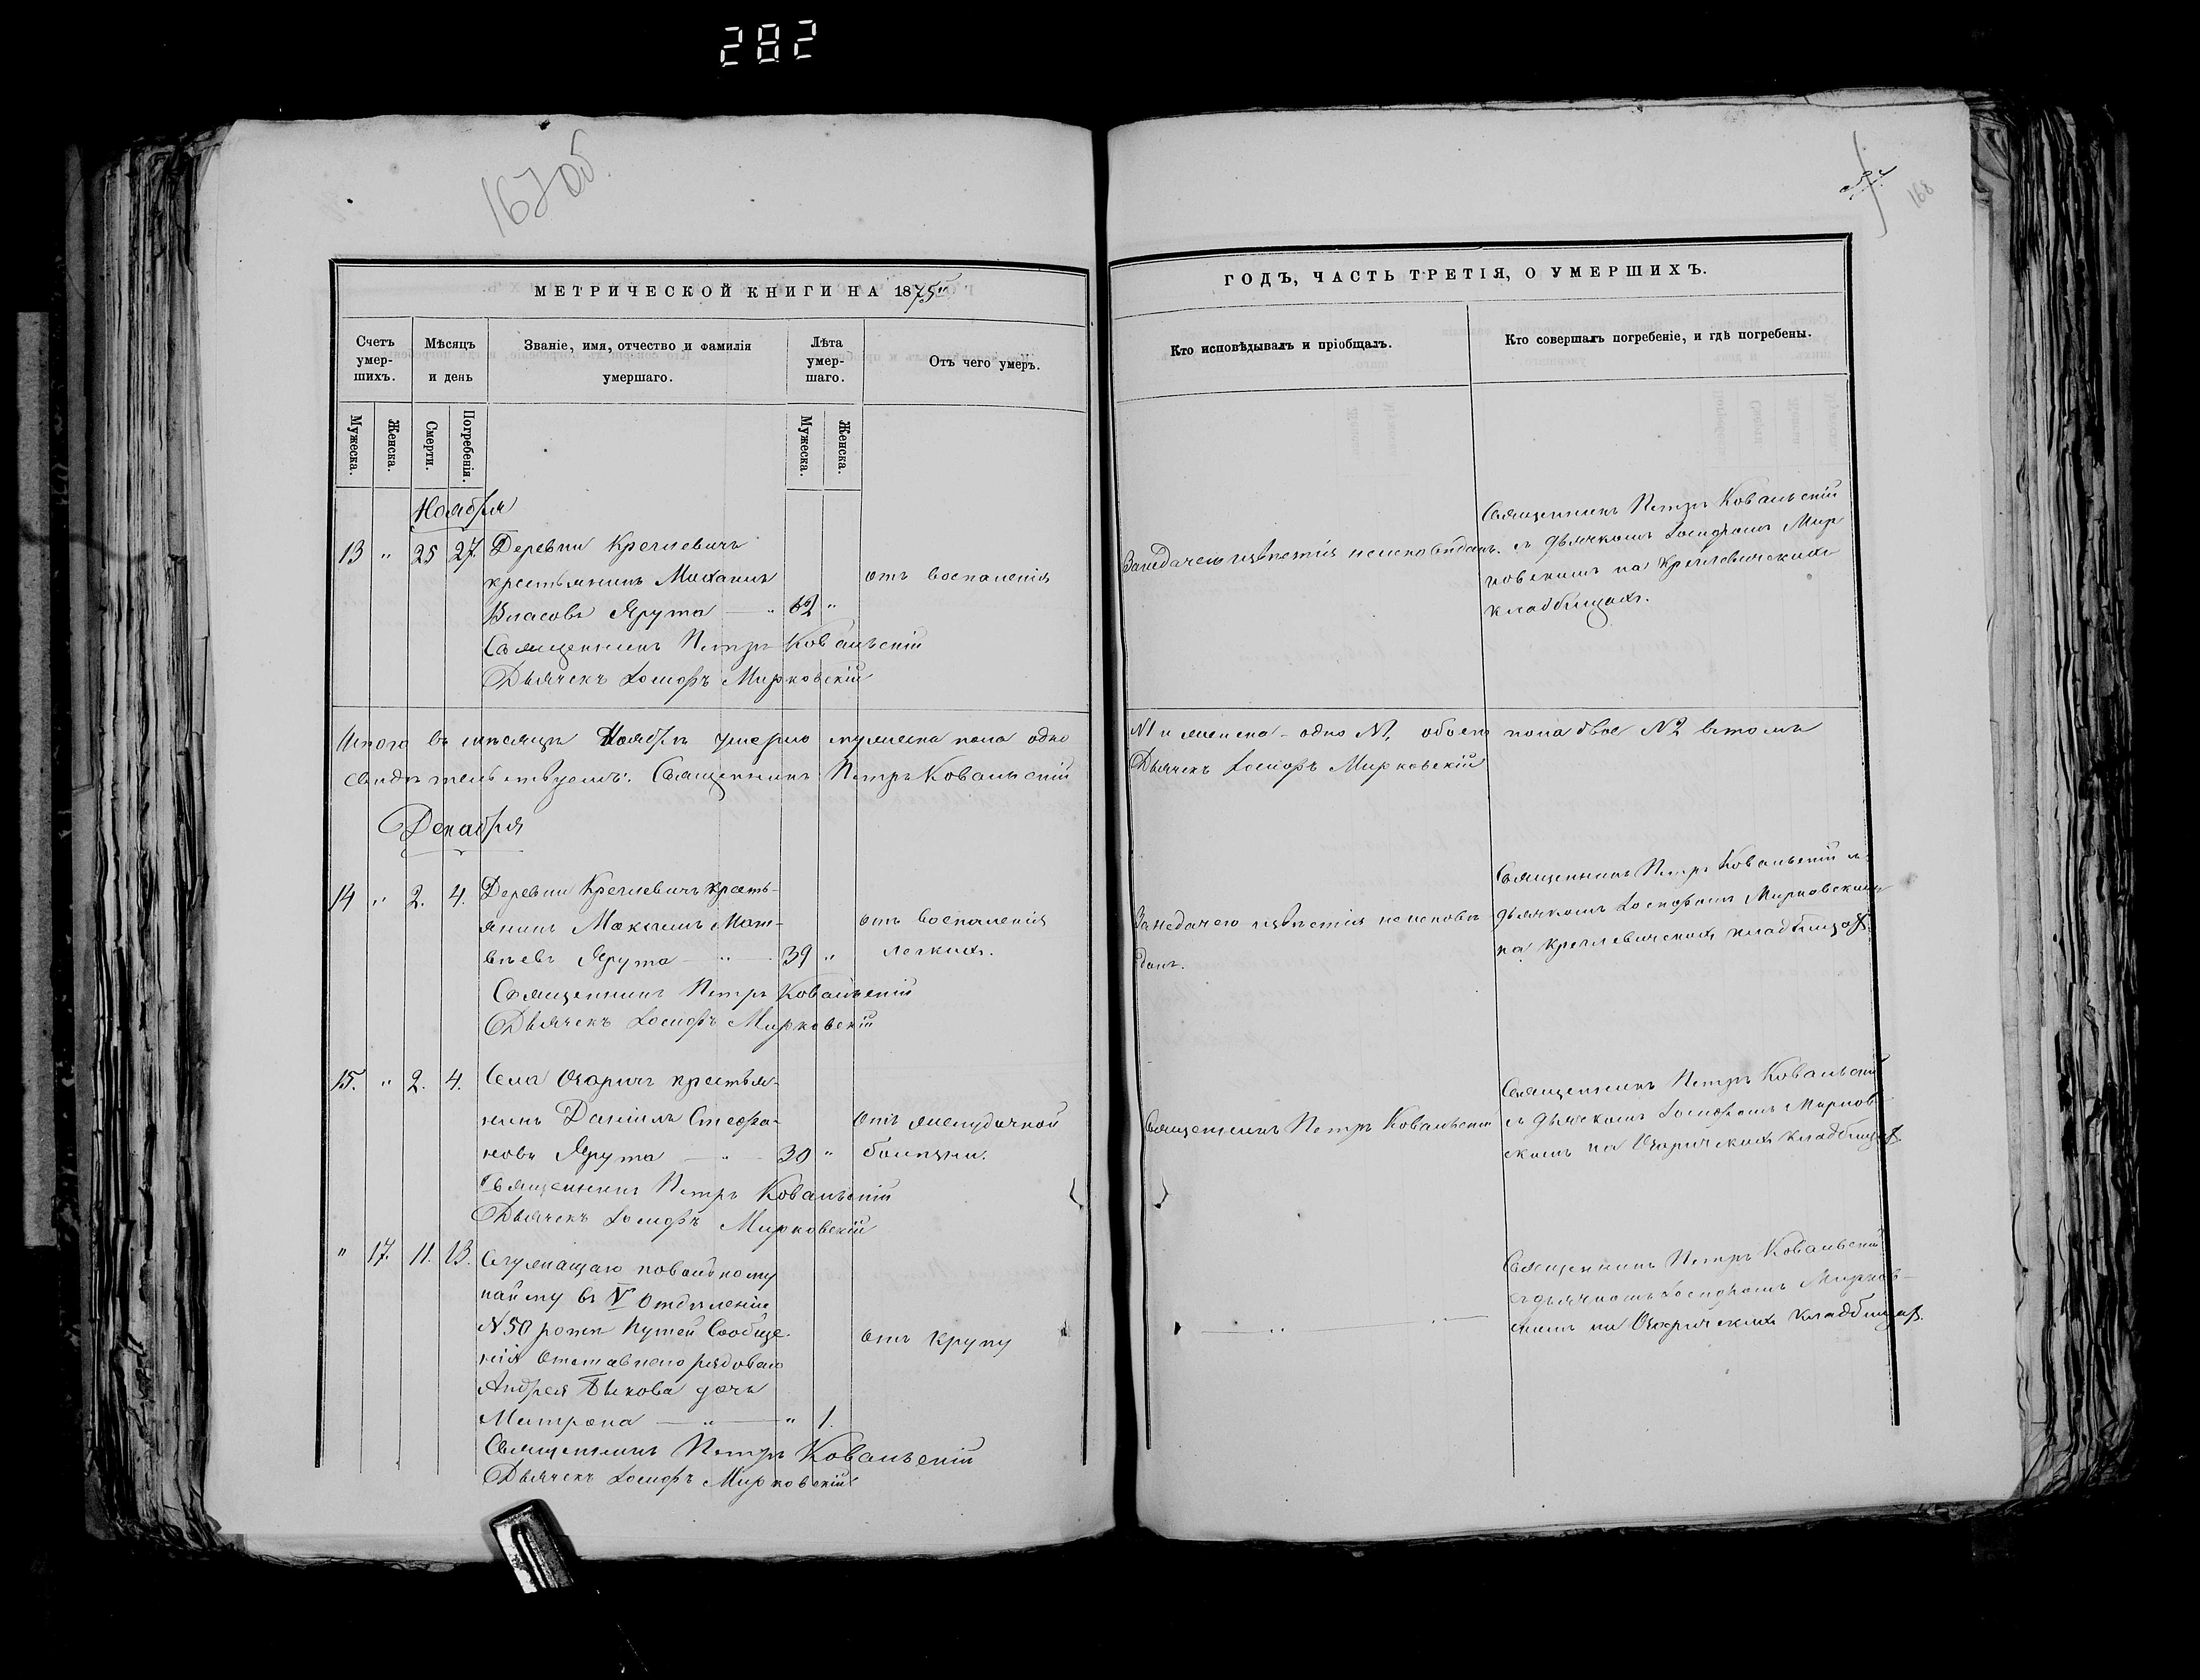 282
167 об.
168
МЕТРИЧЕСКОЙ КНИГИ НА 1875й
ГОДЪ, ЧАСТЬ ТРЕТІЯ, О УМЕРШИХЪ.
Счетъ умер-шихъ.
Мѣсяцъ и день
Званіе, имя, отчество и фамилія умершаго.
Лѣта умер-шаго.
Отъ чего умеръ.
Кто исповѣдывалъ и пріобщалъ.
Кто совершалъ погребеніе, и гдѣ погребены.
Мужеска.
Женска.
Смерти.
Погребенія.
Мужеска.
Женска.
Ноября
13 " 25 27. Деревни Креплевичъ
крестьянинъ
Власовъ Ярута — " 62 "
отъ воспаленія
Священникъ Петръ Ковальскій
Дьячекъ Іосифъ Мирковскій
За недачею извѣстія неисповѣданъ.
Священникъ Петръ Ковальскій
съ дьячкомъ Іосифомъ Мир
ковскимъ на Креплевичскихъ
кладбищахъ.
Итого въ мѣсяцѣ Ноябрѣ умерло мужеска пола одно
№1 и женска - одно №1, обоего пола двое №2 въ томъ
свидѣтельствуемъ: Священникъ Петръ Ковальскій
Дьячекъ Іосифъ Мирковскій
Декабря
14 " 2. 4. Деревни Креплевичъ кресть-
янинъ Максимъ Мат-
вѣевъ Ярута — " — 39 "
отъ воспаленія
легкихъ.
Священникъ Петръ Ковальскій
Дьячекъ Іосифъ Мирковскій
За недачею извѣстія неисповѣ-
данъ.
Священникъ Петръ Ковальскій съ
дьячкомъ Іосифомъ Мирковскимъ
на Креплевичскихъ кладбищахъ.
15. " 2. 4. Села Озаричъ крестья-
нинъ Даніилъ Стефа-
новъ Ярута — " — 30 "
отъ желудочной
болѣзни.
Священникъ Петръ Ковальскій
Дьячекъ Іосифъ Мирковскій
Священникъ Петръ Ковальскій
Священникъ Петръ Ковальскій
съ дьячкомъ Іосифомъ Мирков
скимъ на Озаричскихъ кладбищахъ.
" 17. 11. 13. Служащаго по вольному
найму въ V Отдѣленіи
№50 роты Путей Сообще-
нія отставного рядоваго
Андрея Быкова дочь
Матрона — " — " 1.
отъ крупу
Священникъ Петръ Ковальскій
Дьячекъ Іосифъ Мирковскій
— " — " —
Священникъ Петръ Ковальскій
съ дьячкомъ Іосифомъ Мирков-
скимъ на Озаричскихъ кладбищахъ.